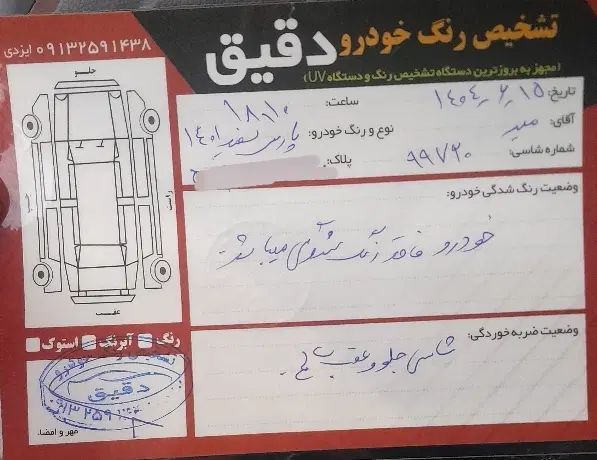 تشخیص رنگ خودرو دقیق
(مجهز به بروزترین دستگاه تشخیص رنگ و دستگاه UV)
۰۹۱۳۲۵۹۱۴۳۸ ایزدی
تاریخ: ۱۴۰۴٫۶٫۱۵ ساعت: ۱۸٫۱۰
آقای: نوع و رنگ خودرو: پارس سفید ۱۴۰۱
شماره شاسی: ۹۹۷۲۰ پلاک:
جلو
چپ
راست
عقب
وضعیت رنگ شدگی خودرو:
خودرو فاقد رنگ شدگی میباشد.
رنگ آبرنگ استوک
وضعیت ضربه خوردگی:
شاسی جلو و عقب سالم.
تشخیص رنگ خودرو
دقیق
مهر و امضا: